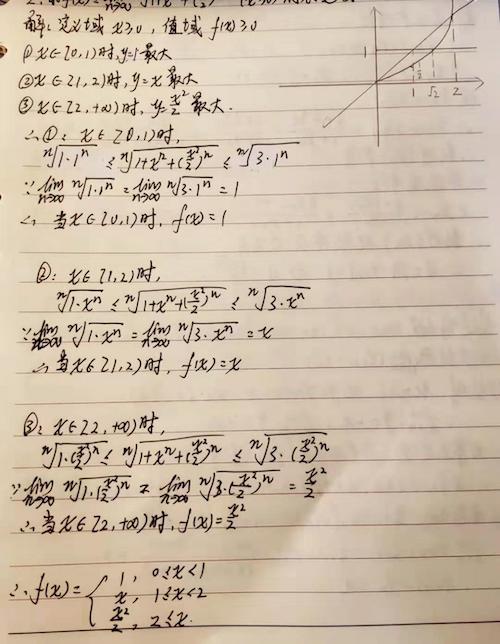 解: 定义域 x≥0, 值域 f(x)≥0
① x∈[0,1)时, y=1最大
② x∈[1,2)时, y=x 最大
③ x∈[2,+∞)时, y=x²/2 最大.
∴ ①: x∈[0,1)时,
ⁿ√(1·1ⁿ) ≤ ⁿ√(1+xⁿ+(x²/2)ⁿ) ≤ ⁿ√(3·1ⁿ)
∵ lim n→∞ ⁿ√(1·1ⁿ) = lim n→∞ ⁿ√(3·1ⁿ) = 1
∴ 当x∈[0,1)时, f(x)=1
②: x∈[1,2)时,
ⁿ√(1·xⁿ) ≤ ⁿ√(1+xⁿ+(x²/2)ⁿ) ≤ ⁿ√(3·xⁿ)
∵ lim n→∞ ⁿ√(1·xⁿ) = lim n→∞ ⁿ√(3·xⁿ) = x
∴ 当x∈[1,2)时, f(x)=x
③: x∈[2,+∞)时,
ⁿ√(1·(x²/2)ⁿ) ≤ ⁿ√(1+xⁿ+(x²/2)ⁿ) ≤ ⁿ√(3·(x²/2)ⁿ)
∵ lim n→∞ ⁿ√(1·(x²/2)ⁿ) = lim n→∞ ⁿ√(3·(x²/2)ⁿ) = x²/2
∴ 当x∈[2,+∞)时, f(x)=x²/2
∴ f(x)= { 1, 0≤x<1
x, 1≤x<2
x²/2, 2≤x.
1
1 √2 2